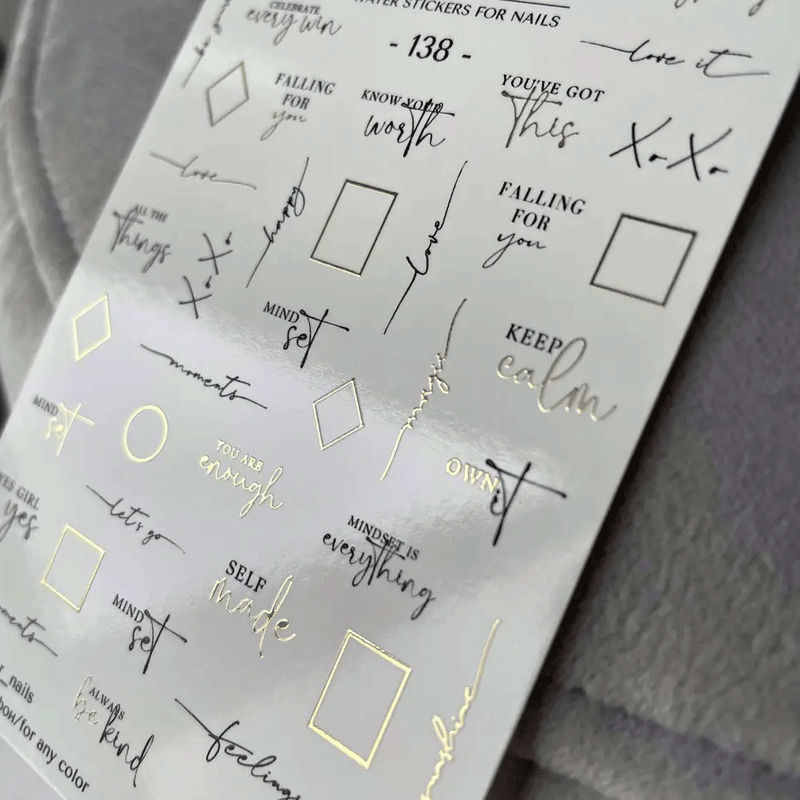 WATER STICKERS FOR NAILS
- 138 -
CELEBRATE
every win
love it
FALLING
FOR
you
KNOW YOUR
worth
YOU'VE GOT
This
XoXo
love
happy
love
FALLING
FOR
you
ALL THE
Things
MIND
set
KEEP
calm
moments
magic
MIND
set
YOU ARE
enough
OWN
iT
YES GIRL
yes
let's go
MINDSET IS
everyThing
SELF
made
MIND
set
sunshine
_nails
/for any color
ALWAYS
be kind
feelings